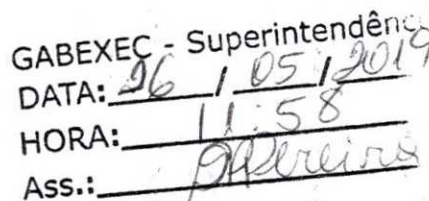 GABEXEC - Superintendênc
DATA: 26 / 05 / 2019
HORA: 11:58
Ass.: Pereira